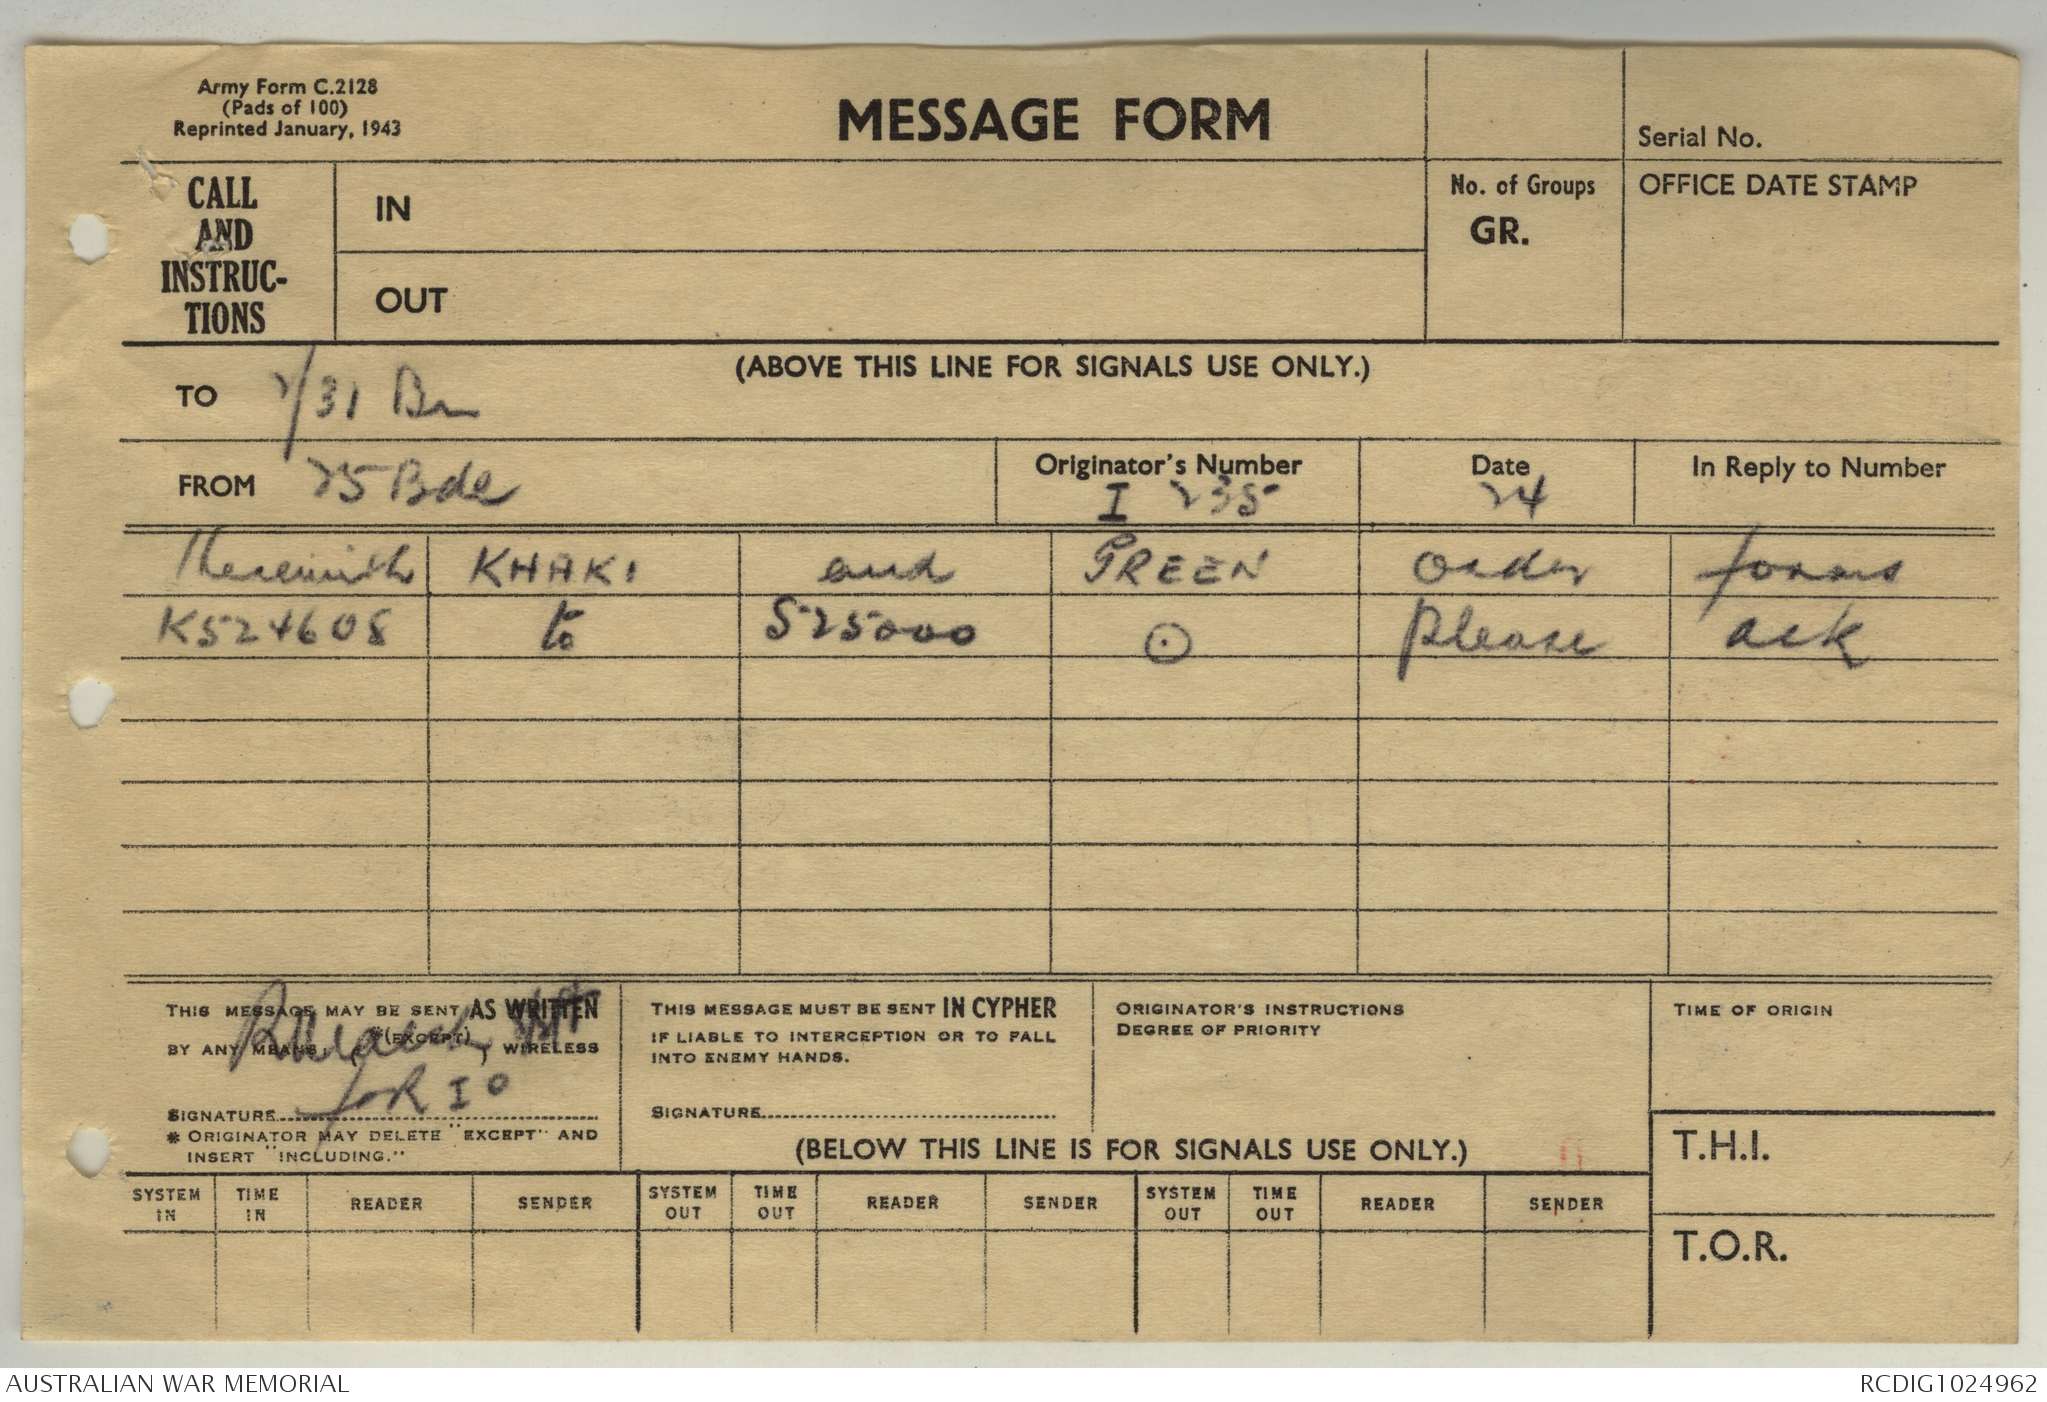 Army Form C.2128
(Pads of 100)
Reprinted January, 1943
MESSAGE FORM
Serial No.
CALL
AND
INSTRUC-
TIONS
IN
OUT
No. of Groups
GR.
OFFICE DATE STAMP
(ABOVE THIS LINE FOR SIGNALS USE ONLY.)
TO 2/31 Bn
FROM 25 Bde
Originator's Number
I 235
Date
24
In Reply to Number
Herewith KHAKI and GREEN order forms
K524608 to 525000 ⊙ Please ack
THIS MESSAGE MAY BE SENT AS WRITTEN
BY ANY MEANS, *(EXCEPT) WIRELESS
for I O
SIGNATURE
* ORIGINATOR MAY DELETE "EXCEPT" AND
INSERT "INCLUDING."
THIS MESSAGE MUST BE SENT IN CYPHER
IF LIABLE TO INTERCEPTION OR TO FALL
INTO ENEMY HANDS.
SIGNATURE
ORIGINATOR'S INSTRUCTIONS
DEGREE OF PRIORITY
TIME OF ORIGIN
(BELOW THIS LINE IS FOR SIGNALS USE ONLY.)
T.H.I.
SYSTEM IN TIME IN READER SENDER SYSTEM OUT TIME OUT READER SENDER SYSTEM OUT TIME OUT READER SENDER
T.O.R.
AUSTRALIAN WAR MEMORIAL
RCDIG1024962